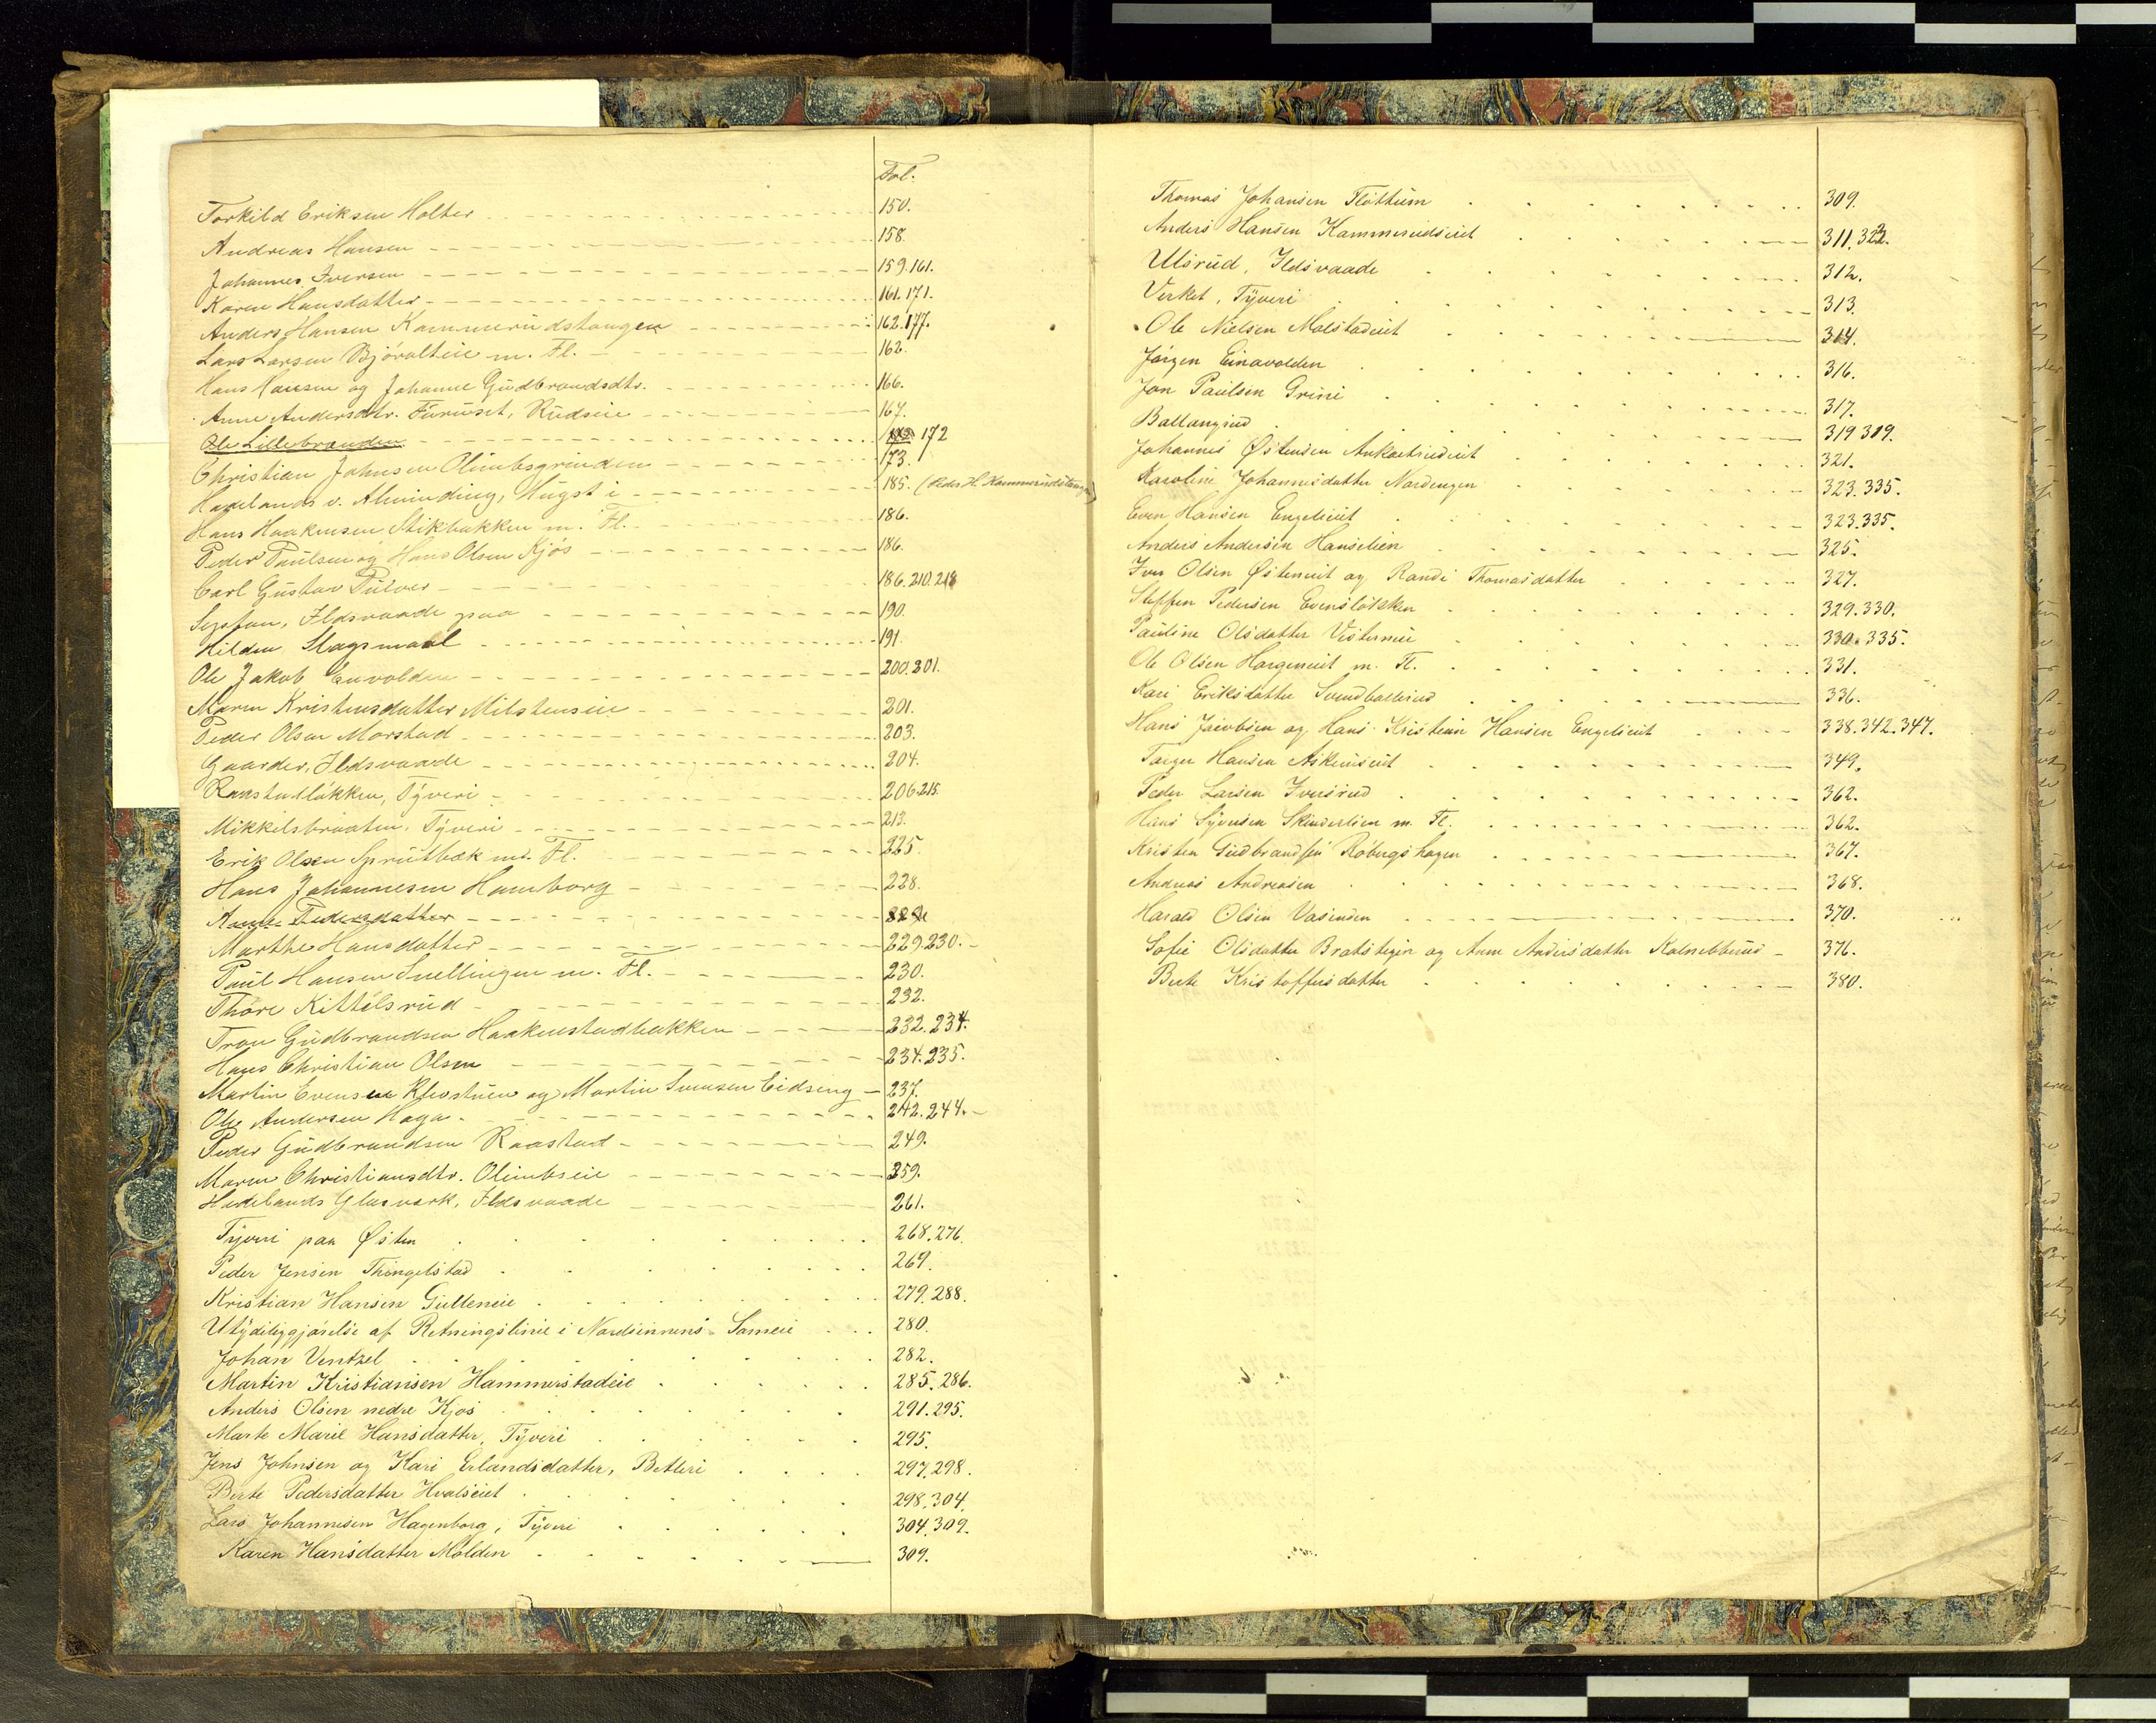 Fol.
Torkild Eriksen Holter 150.
Andreas Hansen 158.
Johannes Iversen 159.161.
Karen Hansdatter 161.171.
Anders Hansen Kammerudstangen 162.177.
Lars Larsen Björalteie m. Fl. 162.
Hans Hansen og Johanne Gudbrandsdtr. 166.
Anne Andersdtr. Furuset, Rudseie 167.
Ole Lillebraaden 172
Christian Johnsen Olimbsgrinden 173.
Hadelands v. Alminding, Hugst i 185. (Peder H. Kammerudstangen)
Hans Haakensen Stikbakken m. Fl. 186.
Peder Paulsen og Hans Olsen Kjös 186.
Carl Gustav Pulver 186.210.218
Ildsvaade paa 190.
Kilden, Slagsmaal 191.
Ole Jakob Envolden 200.201.
Maren Kristensdatter Milstenseie 201.
Peder Olsen Morstad 203.
Gaarder, Ildsvaade 204.
Raastadløkken, Tyveri 206.215.
Mikkelsbraaten, Tyveri 213.
Erik Olsen Sprutbæk m. Fl. 225.
Hans Johannesen Hamborg 228.
Anne Pedersdatter
Marthe Hansdatter 229.230.
Paul Hansen Snellingen m. Fl. 230.
Thore Kittelsrud 232.
Tron Gudbrandsen Haakenstadbakken 232.234.
Hans Christian Olsen 234.235.
Martin Evensen Klevstuen og Martin Svensen Eidseng 237.
Ole Andersen Haga 242.244.
Peder Gudbrandsen Raastad 249.
Maren Christiansdtr. Olimbseie 259.
Hadelands Glasværk, Ildsvaade 261.
Tyveri paa Østen 268.276.
Peder Jensen Thingelstad 269.
Kristian Hansen Gulleneie 279.288.
Utydeliggjørelse af Retningslinie i Nordsinnens Sameie 280.
Johan Ventzel 282.
Martin Kristiansen Hammerstadeie 285.286.
Anders Olsen nedre Kjos 291.295.
Marte Marie Hansdatter, Tyveri 295.
Jens Johnsen og Kari Erlandsdatter, Betleri 297.298.
Berte Pedersdatter Hvalseiet 298.304.
Lars Johannesen Hagenborg, Tyveri 304.309.
Karen Hansdatter Molden 309.
Thomas Johansen Flottum 309.
Anders Hansen Kammerudseiet 311.322.
Ulsrud, Ildsvaade 312.
Verket, Tyveri 313.
Ole Nielsen Molstadeiet 314.
Jørgen Einavolden 316.
Jon Paulsen Grini 317.
Ballangrud 319 319.
Johannes Østensen 321.
Karoline Johannesdatter Nordengen 323.335.
Even Hansen Engelieiet 323.335.
Anders Andersen Hanselien 325.
Iver Olsen Østeneiet og Randi Thomasdatter 327.
Steffen Pedersen Evensløkken 329.330.
Pauline Olsdatter Vesterneie 330.335.
Ole Olsen Horgeneiet m. Fl. 331.
Kari Eriksdatter Svendballerud 336.
Hans Jacobsen og Hans Kristian Hansen Engelieiet 338.342.347.
Torger Hansen Askimeiet 349.
Peder Larsen Iversrud 362.
Hans Syversen Skinderlien m. Fl. 362.
Kristen Gudbrandsen Robergshagen 367.
Andreas Andreasen 368.
Harald Olsen Vasenden 370.
Sofie Olsdatter Bratstigen og Anne Andersdatter Kalnebberud 376.
Berte Kristoffersdatter 380.